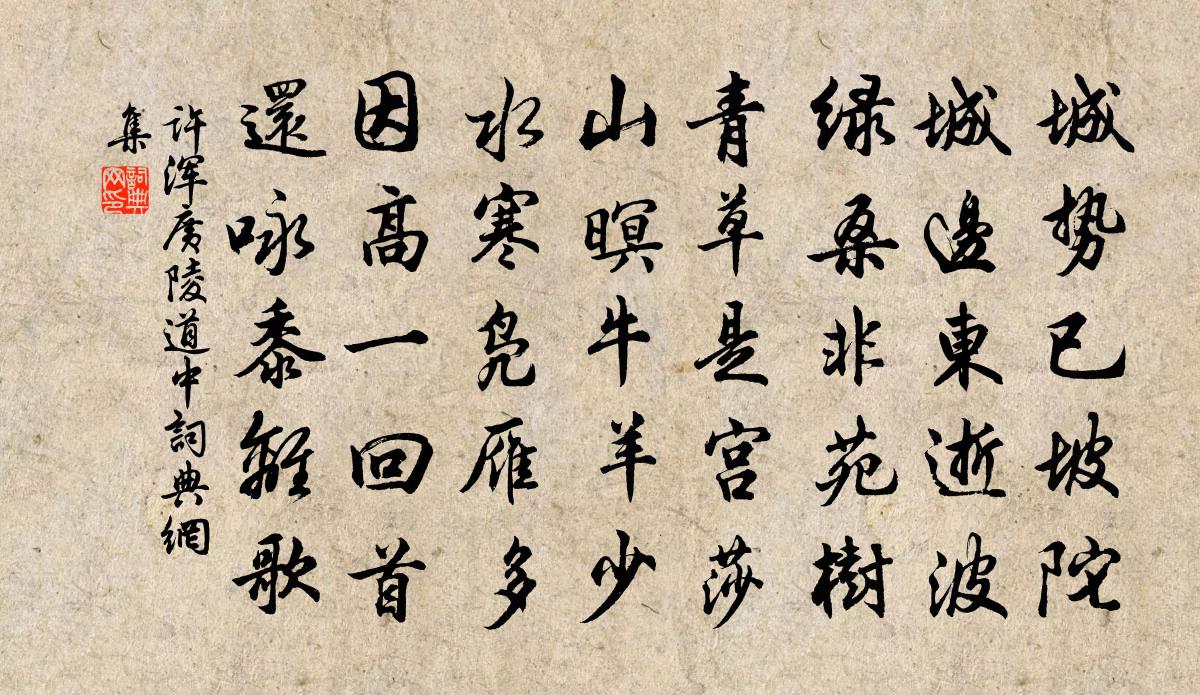 城势已坡陀
城邊東逝波
緑桑非苑樹
青草是宫莎
山暝牛羊少
水寒凫雁多
因高一回首
還咏黍離歌
许渾廣陵道中詞典網
集
詞典
网印